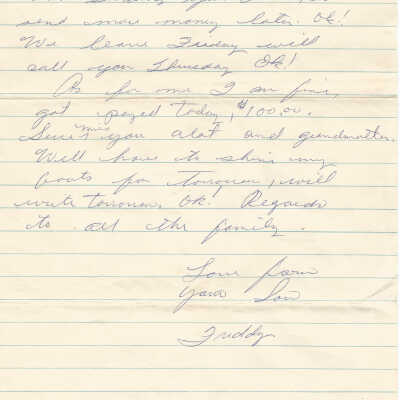 send more money later. Ok!
We leave Friday will
call you Thursday Ok!
As for me I am fine,
got payed today, $100.00.
Sure miss you alot and grandmother.
Will have to shine my
boots for tomorrow, will
write tomorrow. Ok! Regards
to all the family.
Love from
your Son
Freddy